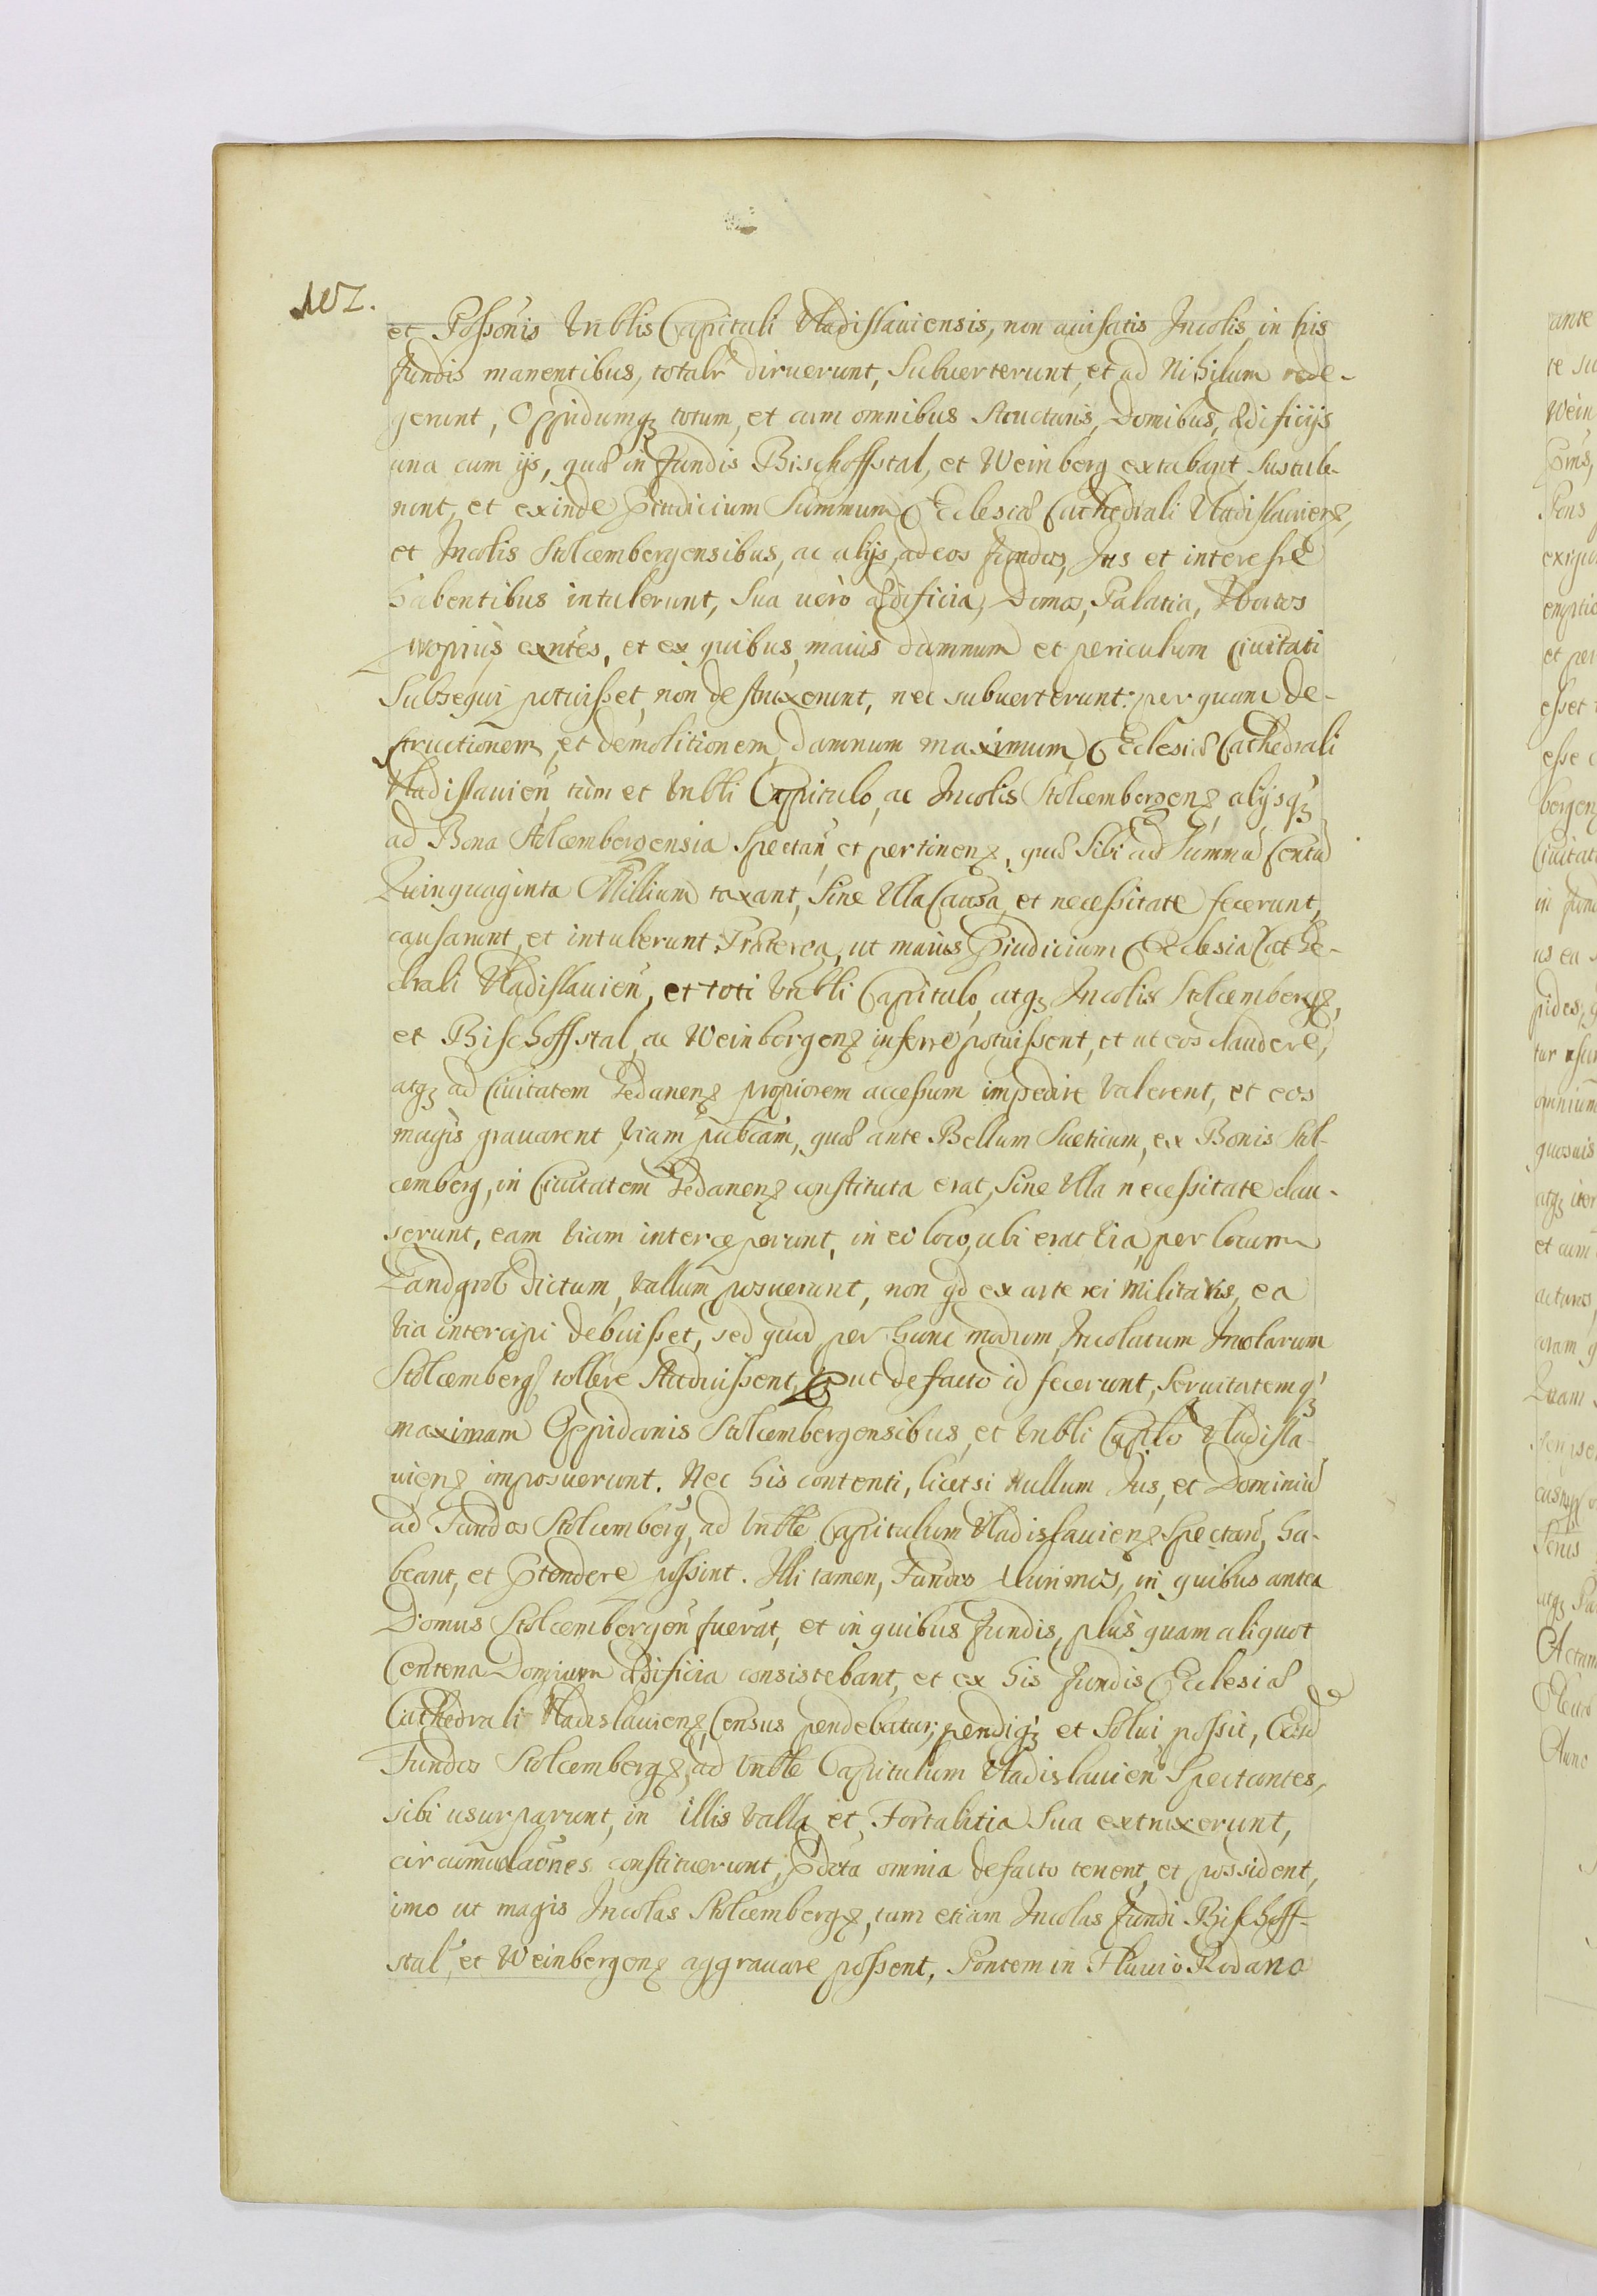 102.
et Possonis Vnblis Capituli Vladislauiensis, non auisatis Incolis, in his
fundis manentibus, totalr diruerunt, Subuerterunt, et ad Nihilum rede-
gerunt, Oppidumqz totum, et cum omnibus Structuris, Domibus, ædificijs
una cum ijs, quæ in fundis Bischoffstal, et Weinberg extabant, sustule-
runt, et exinde Præiudicium Summum Ecclesiæ Cathedrali Vladislauienz,
et Incolis Stolcembergensibus, ac alijs, ad eos fundos, Jus et interesse
habentibus intulerunt, Sua uerò ædificia, Domos, Palatia, Hortos
propius exntes, et ex quibus, maius damnum et periculum Ciuitati
Subsequi potuisset, non destruxerunt, nec subuerterunt: per quam de-
structionem, et demolitionem, damnum maximum, Ecclesiæ Cathedrali
Vladislauien, tùm et Vnbli Capitulo, ac Incolis Stolcembergenz, alijsqz
ad Bona Stolcembergensia Spectan et pertinenz, quæ Sibi ad Summā Centū
Quinquaginta Millium taxant, Sine Vlla Causa, et necessitate fecerunt,
causarunt, et intulerunt. Præterea, ut maius Præiudicium Ecclesiæ Cathe-
drali Vladislauien, et toti Vnbli Capitulo, atqz Incolis Stolcembergz,
et Bischoffstal, ac Weinbergenz inferre potuissent, et ut eos claudere,
atqz ad Ciuitatem Gedanenz propiorem accessum impedire valerent, et eos
magis grauarent, Viam pubcam, quæ ante Bellum Sueticum, ex Bonis Stol-
cemberg, in Ciuitatem Gedanenz constituta erat, Sine Vlla necessitate clau-
serunt, eam Viam interceperunt, in eo loco, ubi erat Via, per locum
Landgrob dictum, Vallum posuerunt, non qd ex arte rei Militaris, ea
Via intercipi debuisset, sed quod per hunc modum, Incolatum Incolarum
Stolcemberg tollere Studuissent, Put defacto id fecerunt, Seruitutemqz
maximam Oppidanis Stolcembergensibus, et Vnbli Caplo Vladisla-
uienz imposuerunt. Nec his contenti, licet si Nullum Jus, et Dominiū
ad Fundos Stolcemberg, ad Vnble Capitulum Vladislauienz Spectan, ha-
beant, et Ptendere possint. Illi tamen, Fundos plurimos, in quibus antea
Domus Stolcembergen fuerat, et in quibus fundis, plus quam aliquot
Centena Domium ædificia consistebant, et ex his fundis Ecclesiæ
Cathedrali Vladislauienz, Census pendebatur, pendiqz et Solui possit, Eosd
Fundos Stolcembergz, ad Vnble Capitulum Vladislauien Spectantes,
sibi usurparunt, in illis Valla, et Fortalitia Sua extruxerunt,
circumualaones constituerunt, Pdcta omnia defacto tenent, et possident,
imo ut magis Incolas Stolcembergz, tum etiam Incolas fundi Bischoff-
stal, et Weinbergenz aggrauare possent, Pontem in Fluuio Rodano